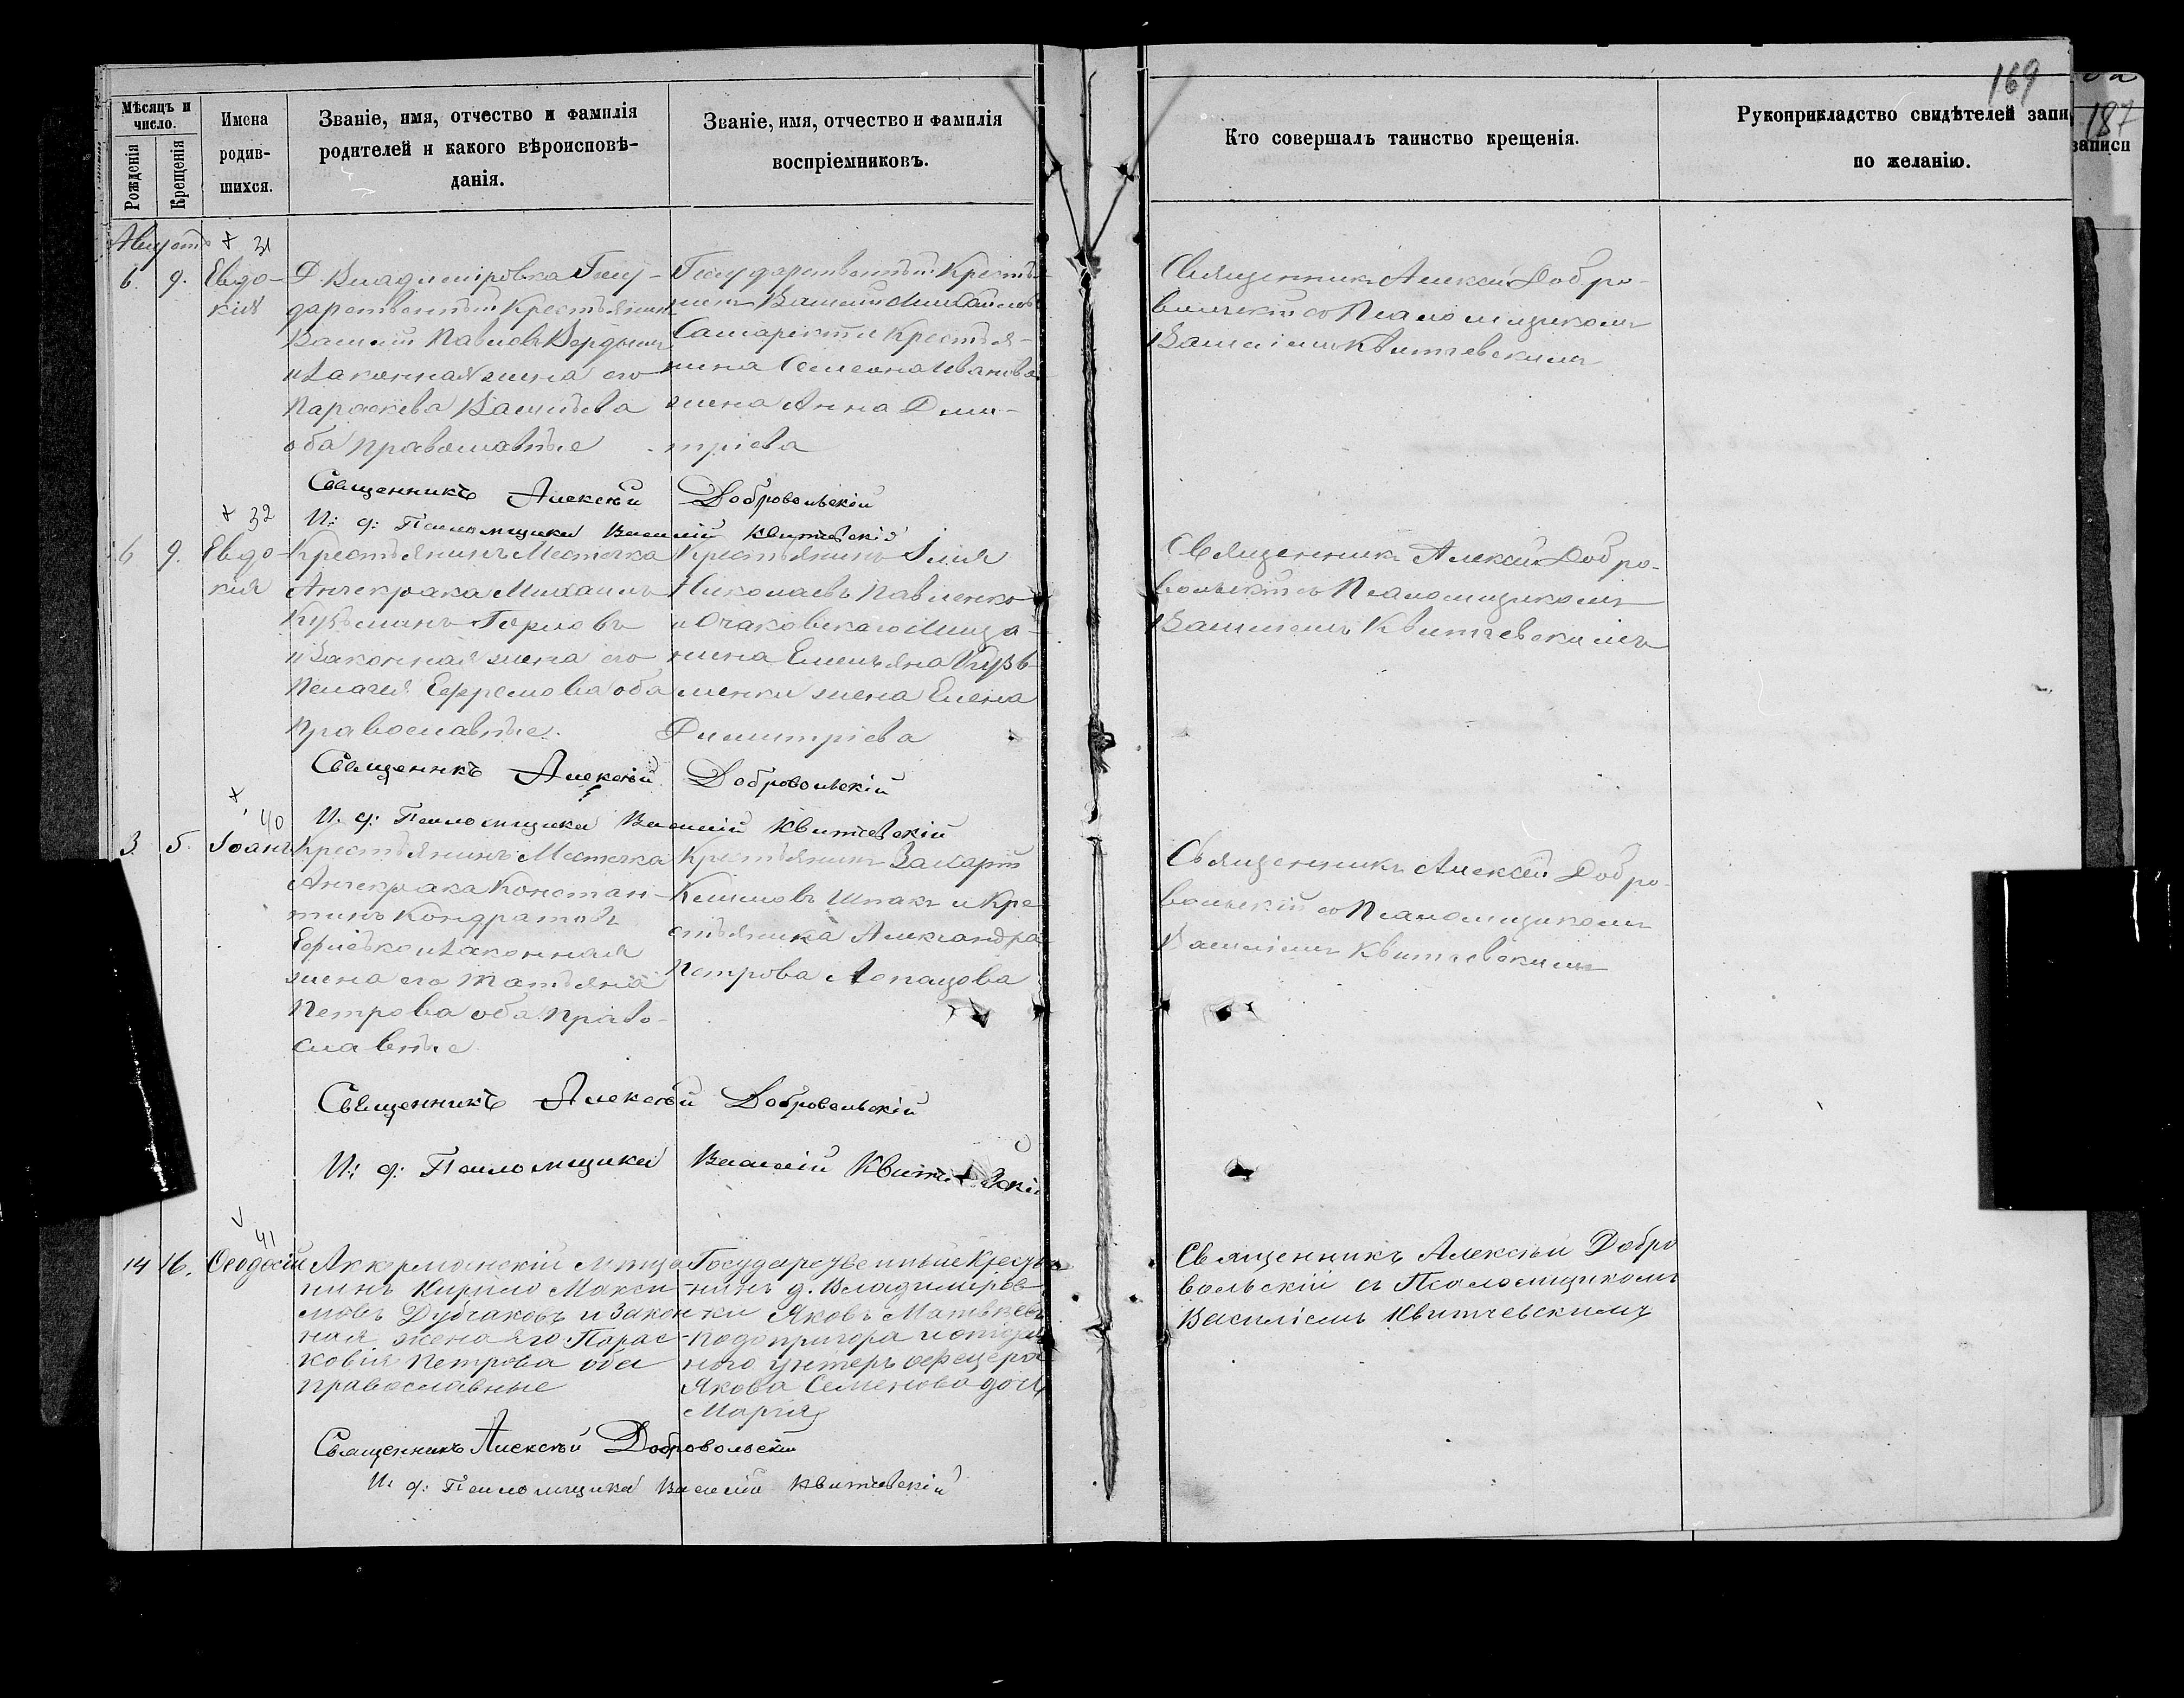 169
187
Мѣсяцъ и
число.
Рожденія
Крещенія
Имена
родив-
шихся.
Званіе, имя, отчество и фамилія
родителей и какого вѣроисповѣ-
данія.
Званіе, имя, отчество и фамилія
воспріемниковъ.
Кто совершалъ таинство крещенія.
Рукоприкладство свидѣтелей запи
по желанію.
записи
Августъ
31
6. 9.
Евдо-
кія
Д Владиміровка Госу-
дарственный Крестьянинъ
Василій Павловъ
и законная жена его
Параскева Васильева
оба православные
Государственный Крестья
нинъ Василій Михайловъ
и Крестья-
нина Семеона Иванова
жена Анна Дми-
тріева
Священникъ Алексей Добро-
вольскій со Псаломщикомъ
Василіемъ Квитчевскимъ
Священникъ Алексѣй Добровольскій
И: д: Псаломщика Василій Квитчевскій
32
6 9.
Евдо-
кія
Крестьянинъ Местечка
Анчекрака Михаилъ
Кузьминъ Горловъ
и законная жена его
Пелагея Ефремова оба
православные.
Крестьянинъ Илія
Николаевъ Павленко
и Очаковскаго мѣща-
нина Емельяна Кузь-
менки жена Елена
Димитріева
Священникъ Алексей Добро-
вольскій со Псаломщикомъ
Василіемъ Квитчевскимъ
Священикъ Алексѣй Добровольскій
И. д: Псаломщика Василій Квитчевскій
40
3. 5.
Іоанъ
Крестьянинъ Местечка
Анчекрака Констан-
тинъ Кондратовъ
и законная
жена его Татьяна
Петрова оба право-
славные
Крестьянинъ Захарій
Шпакъ и Кре
стьянка Александра
Петрова
Священникъ Алексей Добро-
вольскій со Псаломщикомъ
Василіемъ Квитчевскимъ
Священникъ Алексѣй Добровольскій
И: д: Псаломщика Василій Квитчевскій
41
14 16.
Ѳеодосій
Аккерманскій мѣща
нинъ Кирило Макси
мовъ Дубчаковъ и закон
ная жена его Парас
ковія Петрова оба
православные
Государственные Крестья
нинъ д. Владиміров
ки Яковъ Матвѣевъ
Подопригора и
ного унтеръ офецера
Якова Семенова дочь
Марія
Священникъ Алексѣй Добро
вольскій съ Псаломщикомъ
Василіемъ Квитчевскимъ
Священникъ Алексѣй Добровольскій
И. д: Псаломщика Василій Квитчевскій